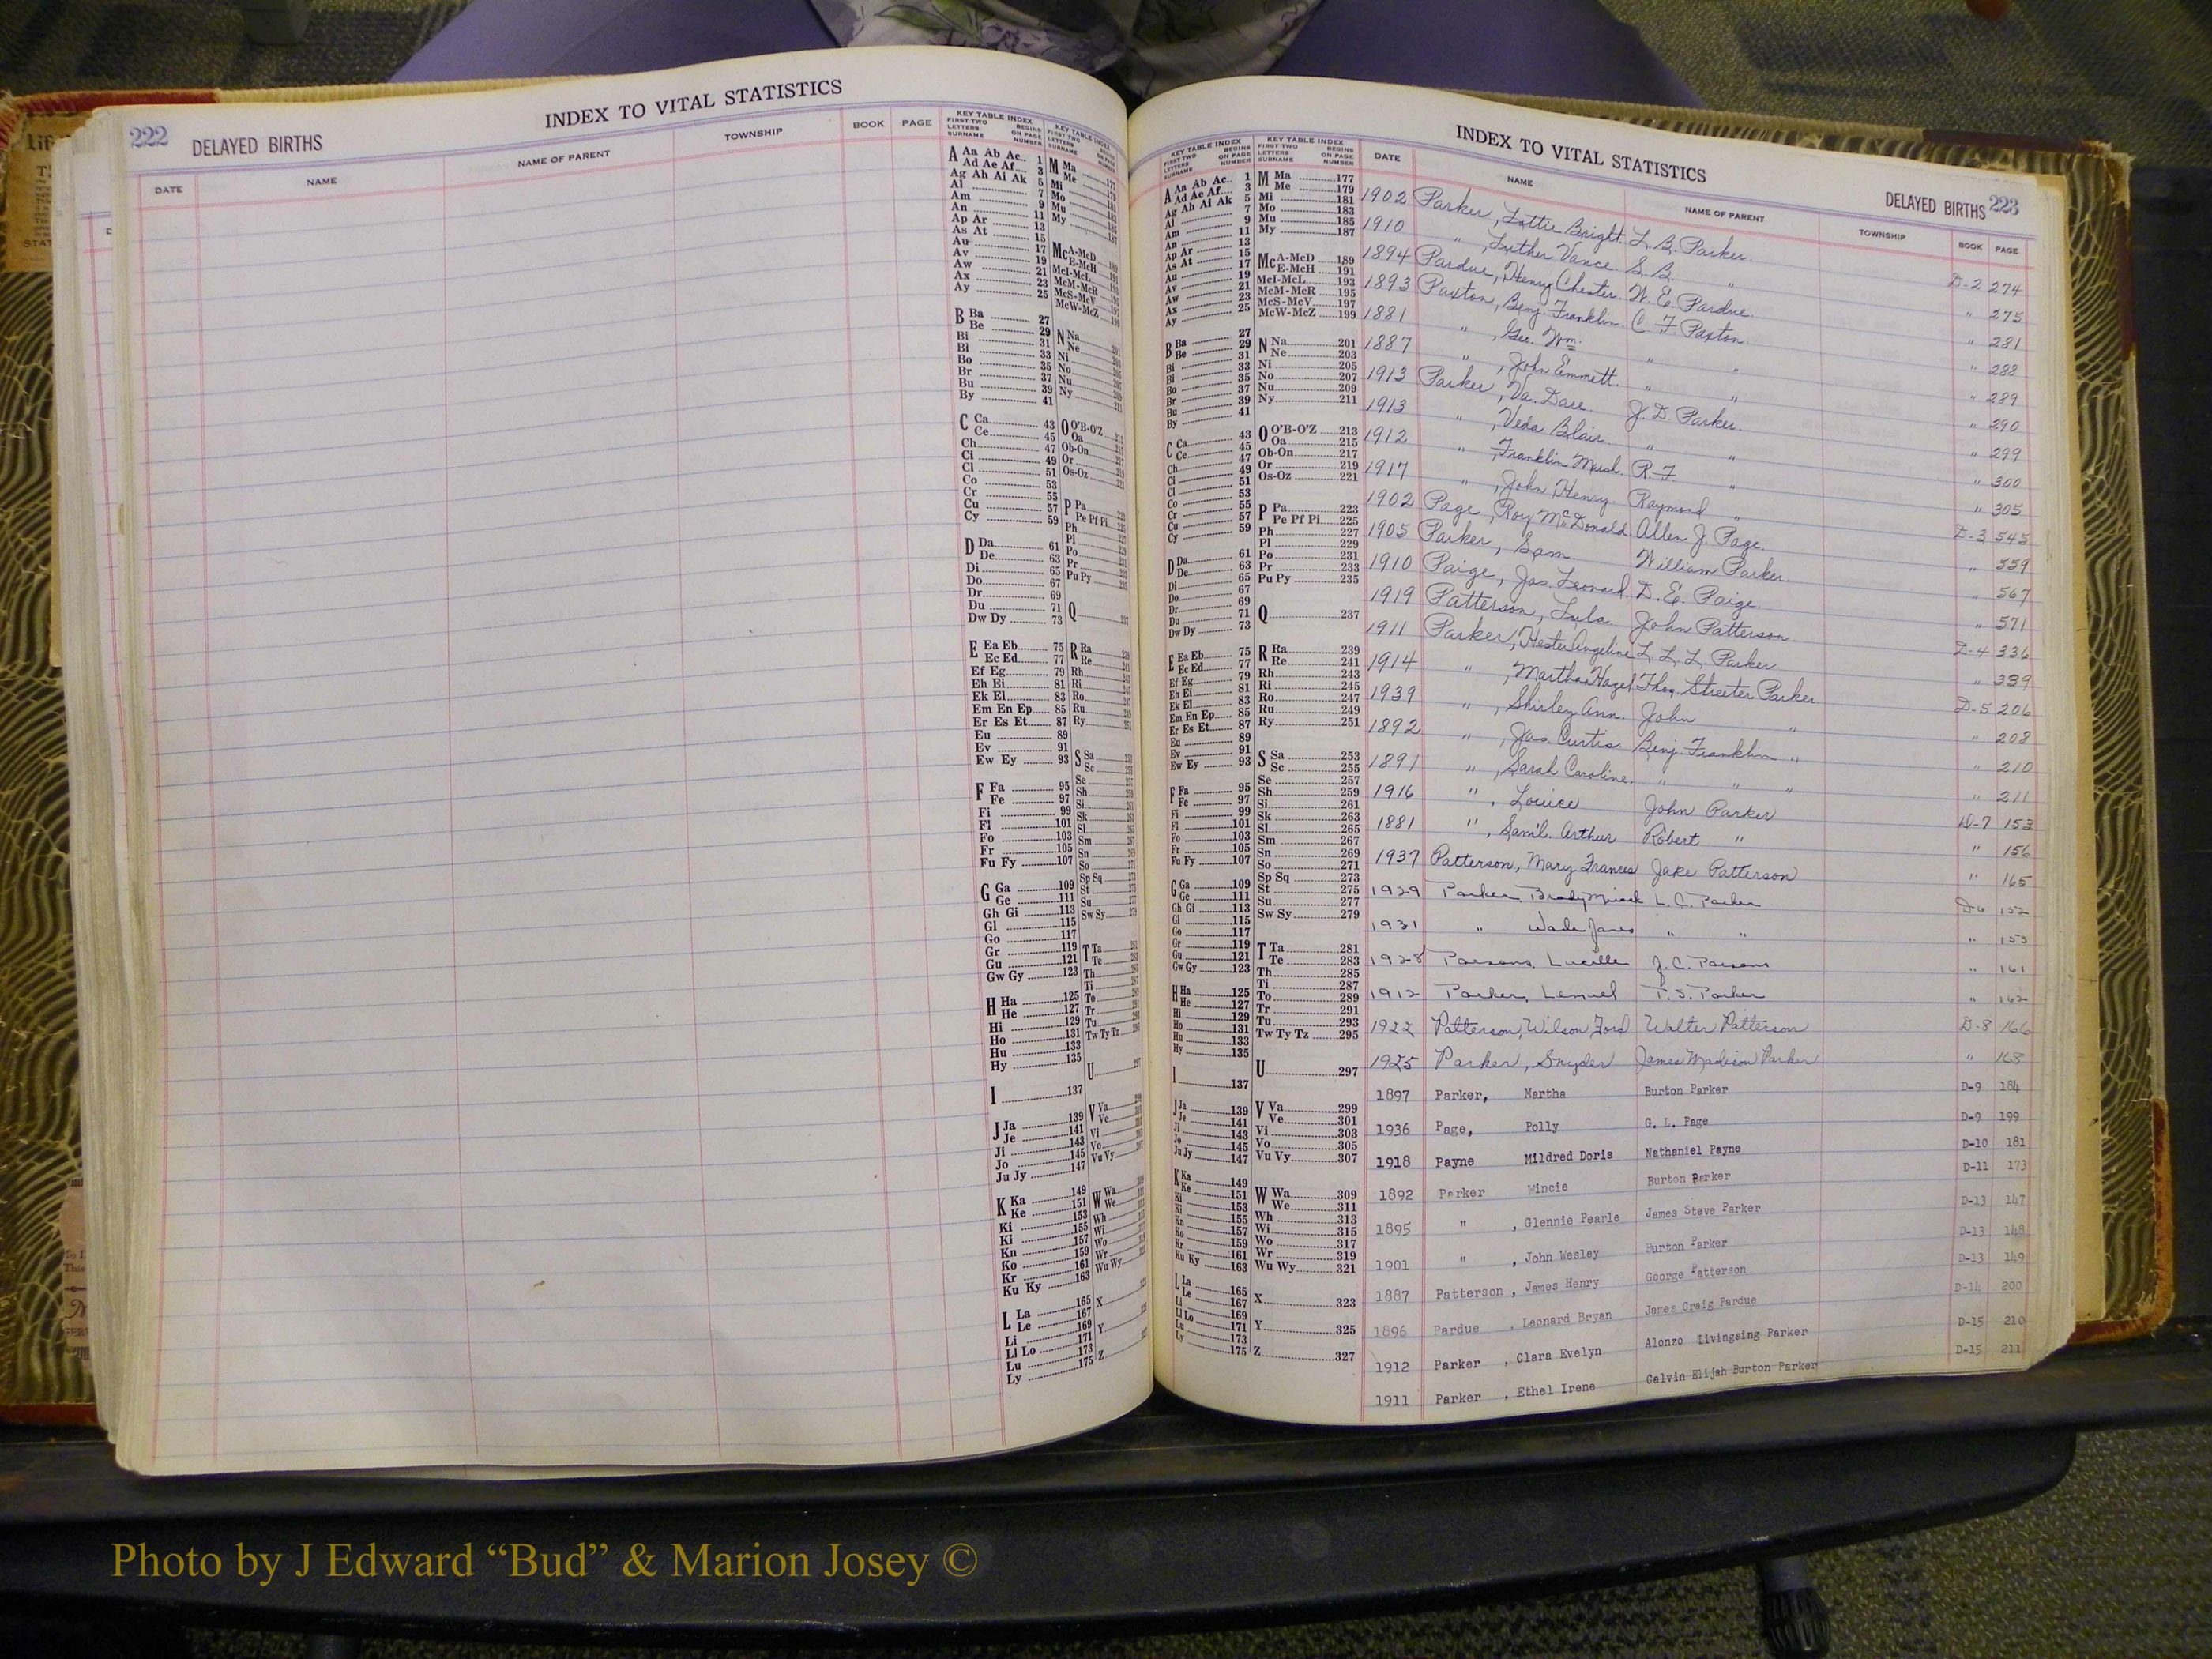 222 DELAYED BIRTHS INDEX TO VITAL STATISTICS
DATE NAME NAME OF PARENT TOWNSHIP BOOK PAGE
KEY TABLE INDEX
FIRST TWO LETTERS SURNAME BEGINS ON PAGE NUMBER
A Aa Ab Ac 1
Ad Ae Af 3
Ag Ah Ai Ak 5
Al 7
Am 9
An 11
Ap Ar 13
As At 15
Au 17
Av 19
Aw 21
Ax 23
Ay 25
B Ba 27
Be 29
Bi 31
Bl 33
Bo 35
Br 37
Bu 39
By 41
C Ca 43
Ce 45
Ch 47
Ci 49
Cl 51
Co 53
Cr 55
Cu 57
Cy 59
D Da 61
De 63
Di 65
Do 67
Dr 69
Du 71
Dw Dy 73
E Ea Eb 75
Ec Ed 77
Ef Eg 79
Eh Ei 81
Ek El 83
Em En Ep 85
Er Es Et 87
Eu 89
Ev 91
Ew Ey 93
F Fa 95
Fe 97
Fi 99
Fl 101
Fo 103
Fr 105
Fu Fy 107
G Ga 109
Ge 111
Gh Gi 113
Gl 115
Go 117
Gr 119
Gu 121
Gw Gy 123
H Ha 125
He 127
Hi 129
Ho 131
Hu 133
Hy 135
I 137
J Ja 139
Je 141
Ji 143
Jo 145
Ju Jy 147
K Ka 149
Ke 151
Ki 153
Kl 155
Kn 157
Ko 159
Kr 161
Ku Ky 163
L La 165
Le 167
Li 169
Ll Lo 171
Lu 173
Ly 175
INDEX TO VITAL STATISTICS DELAYED BIRTHS 223
KEY TABLE INDEX
FIRST TWO LETTERS SURNAME BEGINS ON PAGE NUMBER
M Ma 177
Me 179
Mi 181
Mo 183
Mu 185
My 187
Mc A-McD 189
E-McH 191
McI-McL 193
McM-McR 195
McS-McV 197
McW-McZ 199
N Na 201
Ne 203
Ni 205
No 207
Nu 209
Ny 211
O O'B-O'Z 213
Oa 215
Ob-On 217
Or 219
Os-Oz 221
P Pa 223
Pe Pf Pi 225
Ph 227
Pl 229
Po 231
Pr 233
Pu Py 235
Q 237
R Ra 239
Re 241
Rh 243
Ri 245
Ro 247
Ru 249
Ry 251
S Sa 253
Sc 255
Se 257
Sh 259
Si 261
Sk 263
Sl 265
Sm 267
Sn 269
So 271
Sp Sq 273
St 275
Su 277
Sw Sy 279
T Ta 281
Te 283
Th 285
Ti 287
To 289
Tr 291
Tu 293
Tw Ty Tz 295
U 297
V Va 299
Ve 301
Vi 303
Vo 305
Vu Vy 307
W Wa 309
We 311
Wh 313
Wi 315
Wo 317
Wr 319
Wu Wy 321
X 323
Y 325
Z 327
DATE NAME NAME OF PARENT TOWNSHIP BOOK PAGE
1902 Parker, Lottie Bright L. B. Parker D-2 274
1910 " , Luther Vance S. B. " " 275
1894 Pardue, Henry Chester W. E. Pardue " 281
1893 Paxton, Benj. Franklin C. F. Paxton " 288
1881 " , Geo. Wm. " " " 289
1887 " , John Emmett " " " 290
1913 Parker, Va. Dare J. D. Parker " 299
1913 " , Veda Blair " " " 300
1912 " , Franklin Marsh R. F. " " 305
1917 " , John Henry Raymond " D-3 545
1902 Page, Roy McDonald Allen J. Page " 559
1905 Parker, Sam William Parker " 567
1910 Paige, Jas. Leonard D. E. Paige " 571
1919 Patterson, Lula John Patterson D-4 336
1911 Parker, Hester Angeline L. L. L. Parker " 339
1914 " , Martha Hazel Thos. Streeter Parker D-5 206
1939 " , Shirley Ann John " " 208
1892 " , Jas. Curtis Benj. Franklin " " 210
1891 " , Sarah Caroline " " " " 211
1916 " , Louice John Parker D-7 153
1881 " , Saml. Arthur Robert " " 156
1937 Patterson, Mary Frances Jake Patterson " 165
1929 Parker, Brady L. C. Parker D6 152
1931 " Wade James " " " 153
1928 Parsons, Lucille J. C. Parsons " 161
1912 Parker, Lemuel T. S. Parker " 162
1922 Patterson, Wilson Ford Walter Patterson D-8 166
1925 Parker, Snyder James Madison Parker " 168
1897 Parker, Martha Burton Parker D-9 184
1936 Page, Polly G. L. Page D-9 199
1918 Payne Mildred Doris Nathaniel Payne D-10 181
1892 Parker Wincie Burton Parker D-11 173
1895 " , Glennie Pearle James Steve Parker D-13 147
1901 " , John Wesley Burton Parker D-13 148
1887 Patterson , James Henry George Patterson D-13 149
1896 Pardue , Leonard Bryan James Craig Pardue D-14 200
1912 Parker , Clara Evelyn Alonzo Livingsing Parker D-15 210
1911 Parker , Ethel Irene Calvin Elijah Burton Parker D-15 211
Photo by J Edward “Bud” & Marion Josey ©